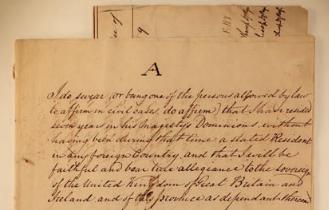 A
I do swear (or being one of the persons allowed by law
to affirm in civil cases, do affirm) that I have resided
seven years in his Majesty's Dominions without
having been during that time a stated Resident
in any foreign Country, and that I will be
faithful and bear true allegiance to the sovereign
of the United Kingdom of Great Britain and
Ireland and of this province as dependant thereon